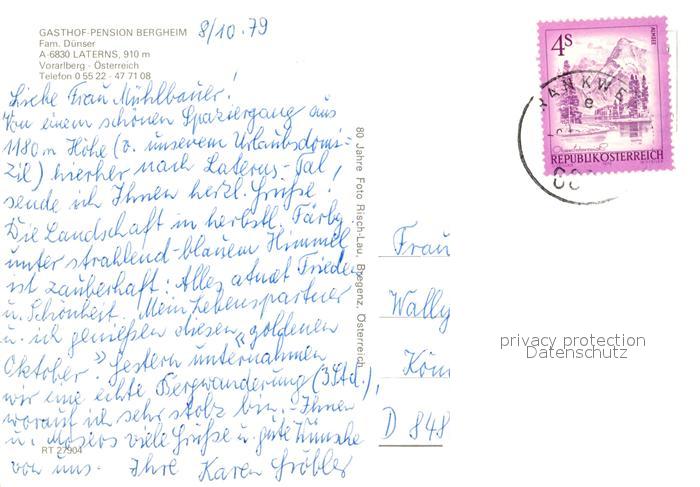 GASTHOF-PENSION BERGHEIM
Fam. Dünser
A-6830 LATERNS, 910 m
Vorarlberg - Österreich
Telefon 0 55 22 - 47 71 08
8/10.79
Liebe Frau Mühlbauer!
Von einem schönen Spaziergang aus
1180 m Höhe (v. unserem Urlaubsdomi-
zil) hierher nach Laterns-Tal,
sende ich Ihnen herzl. Grüße!
Die Landschaft in herbstl. Färbg
unter strahlend-blauem Himmel
ist zauberhaft: Alles atmet Frieden
u. Schönheit. Mein Lebenspartner
u. ich genießen diesen „goldenen
Oktober". Gestern unternahmen
wir eine echte Bergwanderung (3 Std.),
worauf ich sehr stolz bin. - Ihnen
u. Mosers viele Grüße u. gute Wünsche
von uns. Ihre Karen Gröbler
RT 27904
80 Jahre Foto Risch-Lau, Bregenz, Österreich
4S
ALMSEE
REPUBLIK ÖSTERREICH
RANKWE
e
Frau
Wally
Köni
D 848
privacy protection
Datenschutz